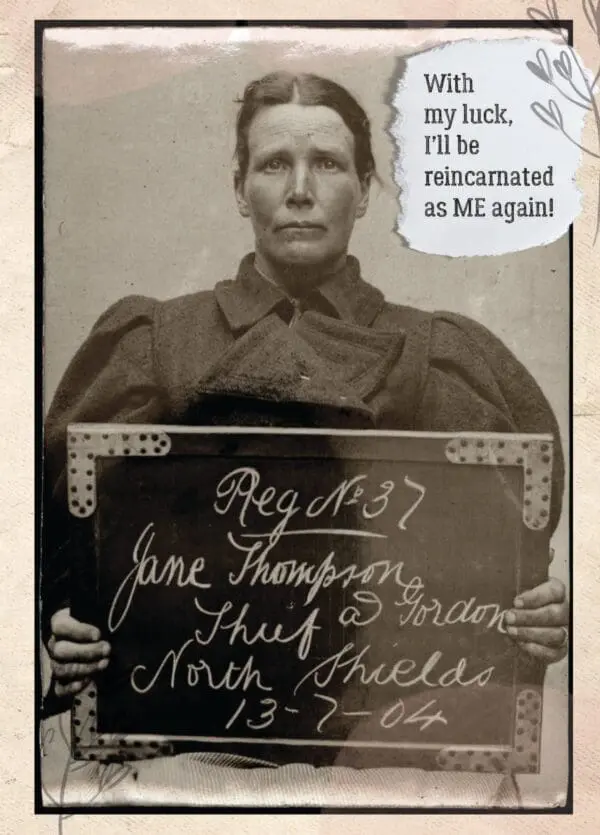 With
my luck,
I'll be
reincarnated
as ME again!
Reg No 37
Jane Thompson
Thief @ Gordon
North Shields
13-7-04